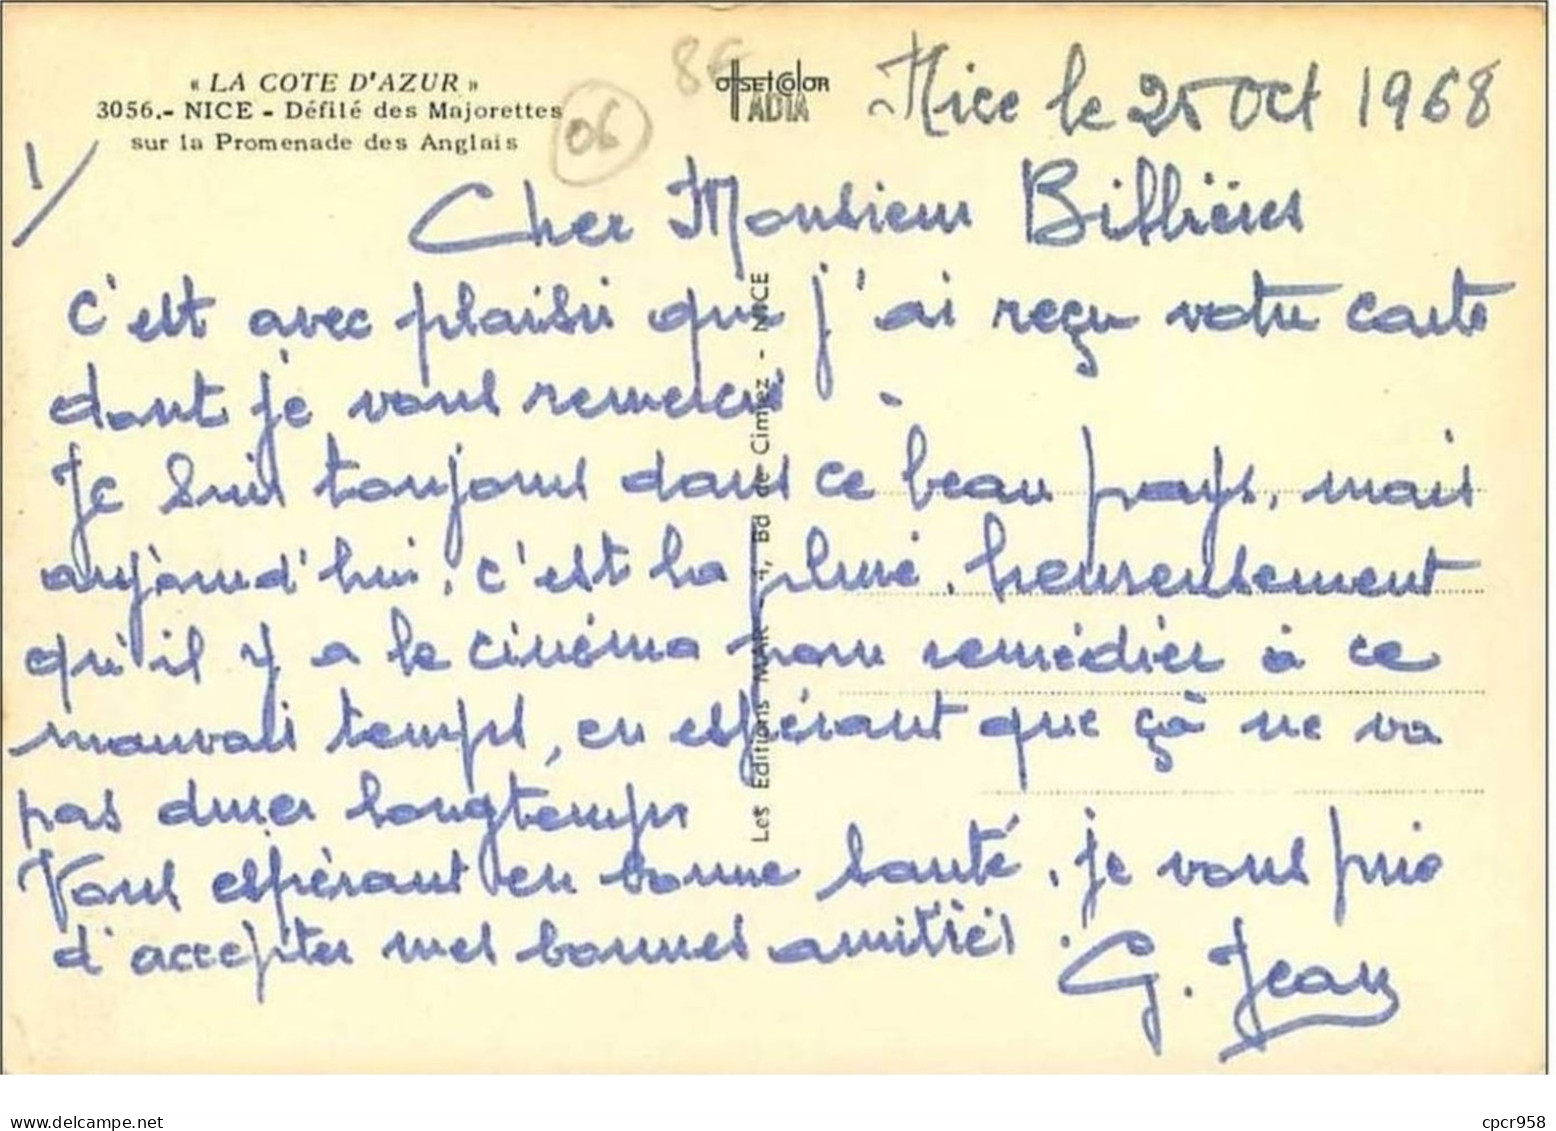 « LA COTE D'AZUR »
3056.- NICE - Défilé des Majorettes
sur la Promenade des Anglais
06
86
OffsetColor
ADIA
1/
Nice le 25 Oct 1968
Cher Monsieur Billières
c'est avec plaisir que j'ai reçu votre carte
dont je vous remercie.
Je suis toujours dans ce beau pays, mais
aujourd'hui, c'est la pluie, heureusement
qu'il y a le cinéma pour remédier à ce
mauvais temps, en espérant que çà ne va
pas durer longtemps
Vous espérant en bonne santé, je vous prie
d'accepter mes bonnes amitiés
G. Jean
Les Editions MAR - , Bd de Cimiez - NICE
www.delcampe.net
cpcr958